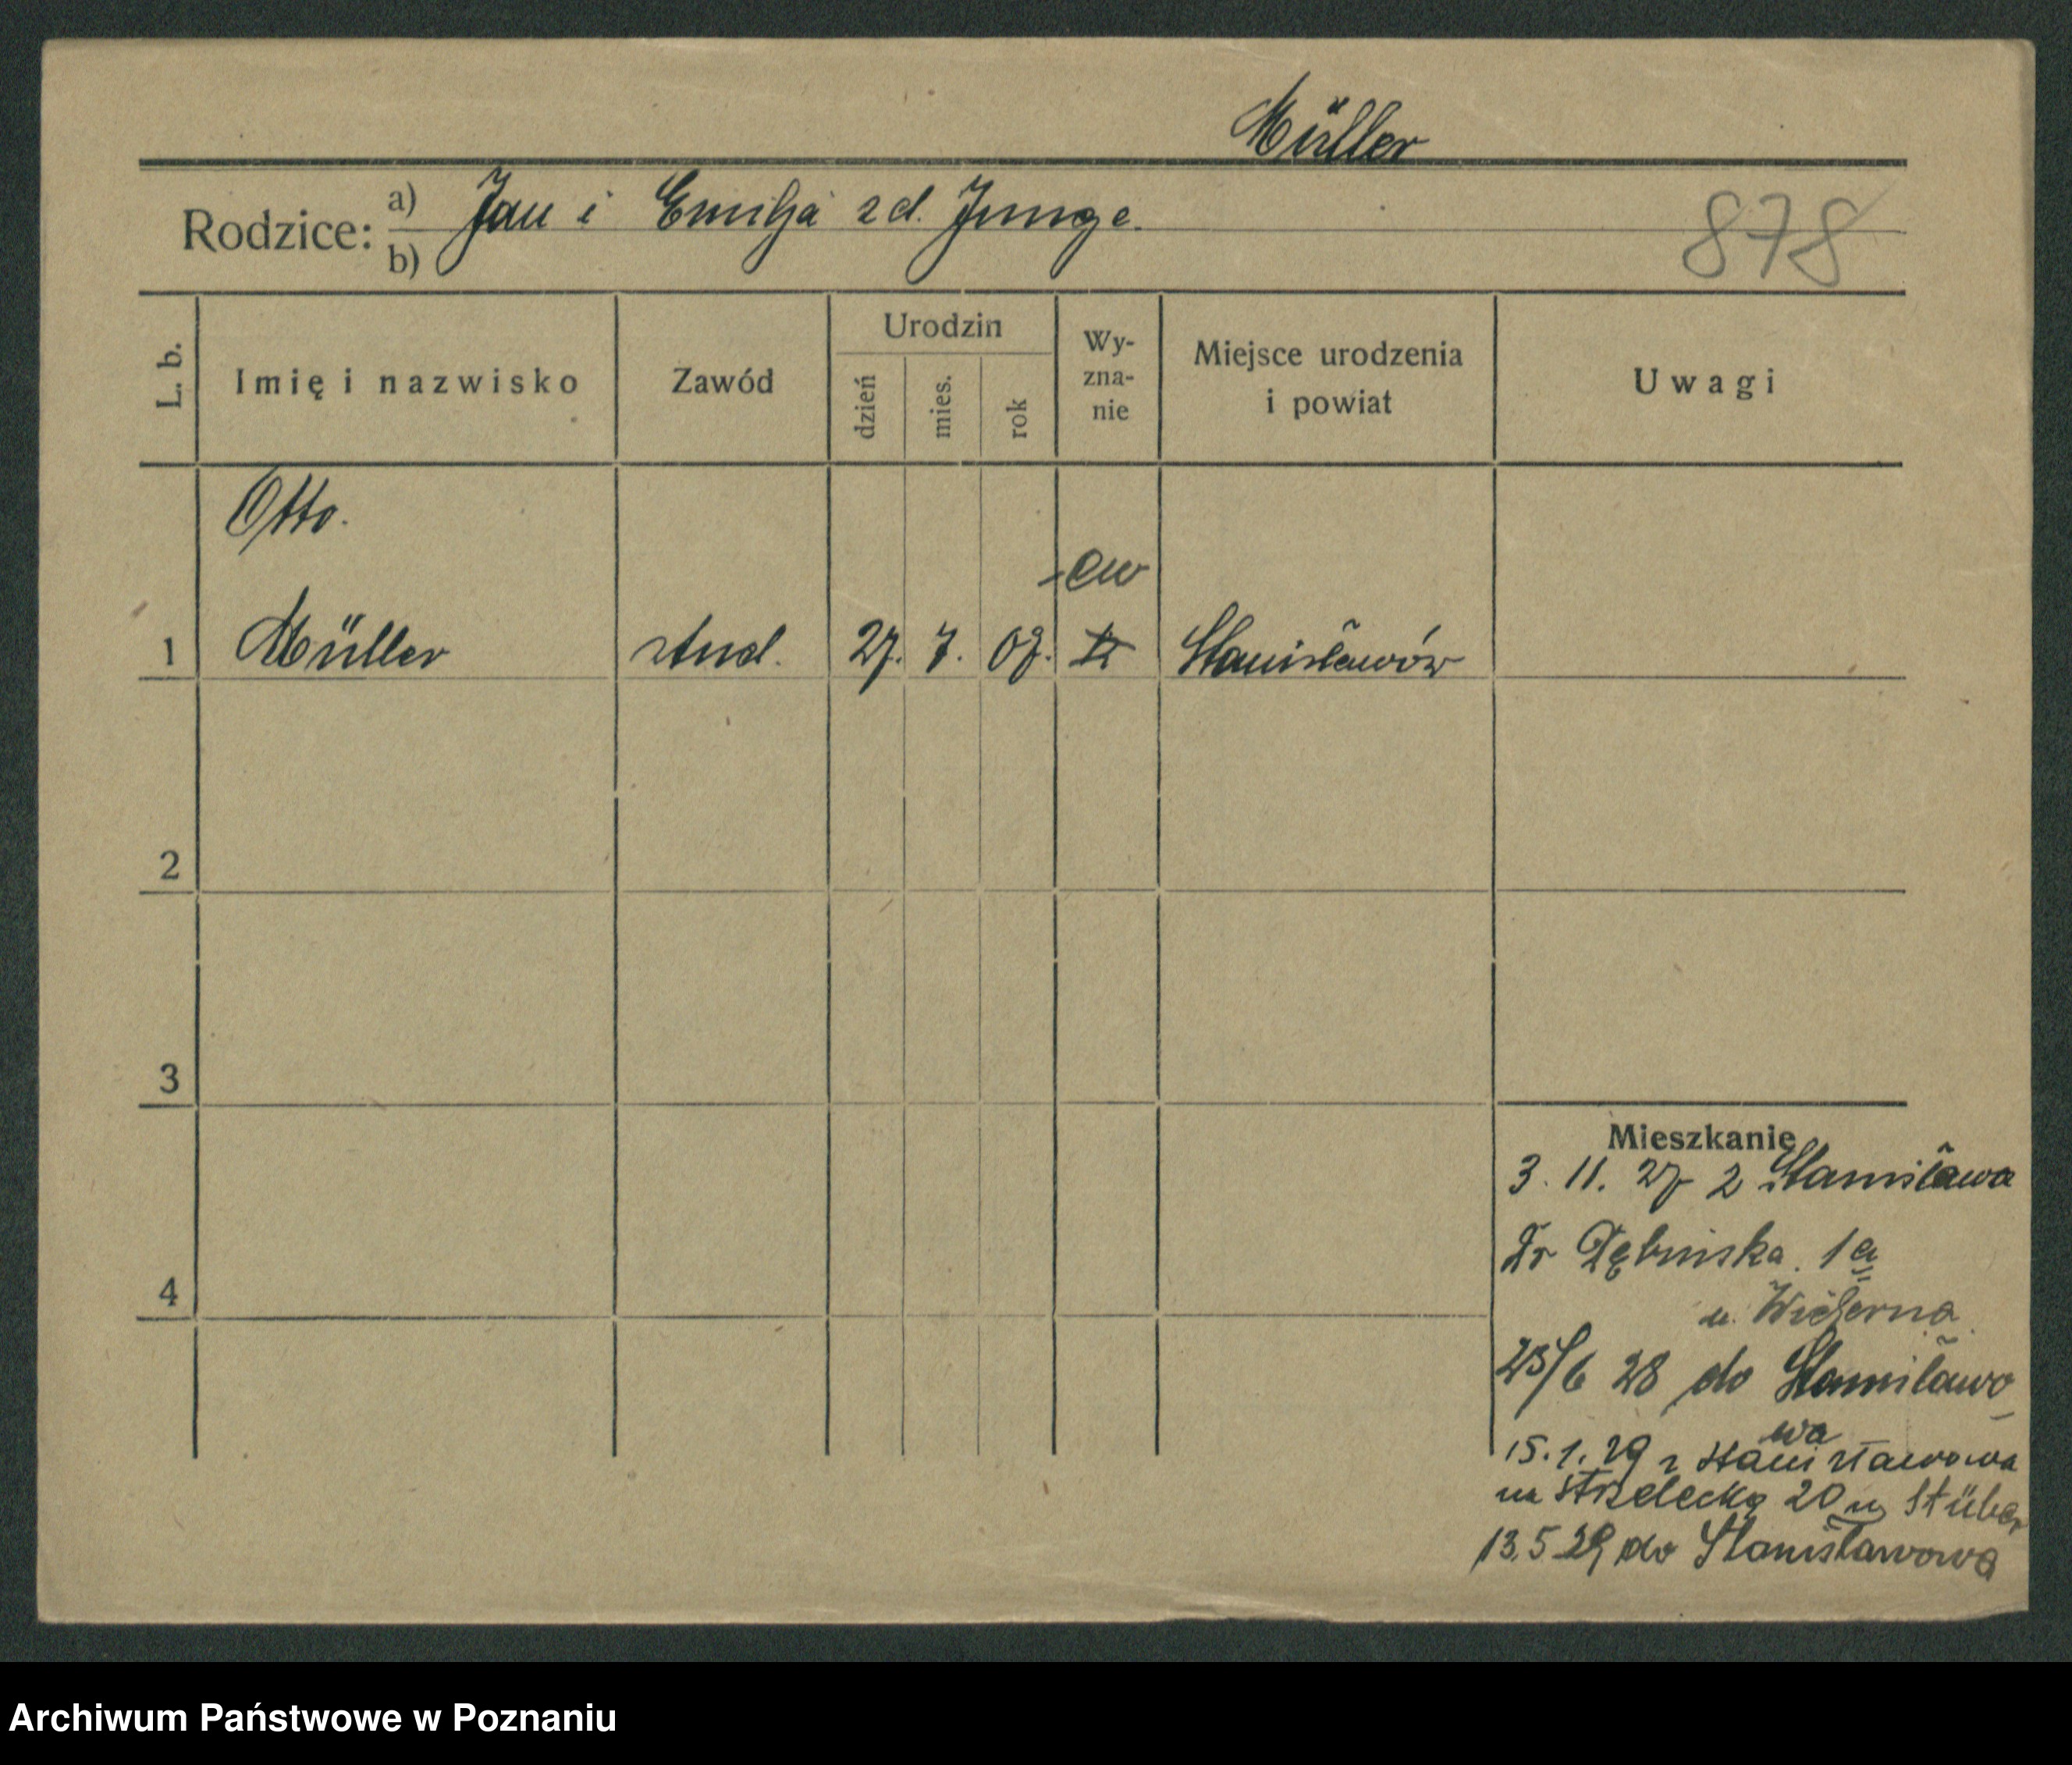 Müller
Rodzice: a) Jan i Emilja zd. Junge.
b)
878
L. b.
Imię i nazwisko
Zawód
Urodzin
dzień
mies.
rok
Wy-
zna-
nie
Miejsce urodzenia
i powiat
Uwagi
Otto.
ew
1 Müller stud. 27. 7. 07. Stanisławów
2
3
4
Mieszkanie
3. 11. 27 z Stanisława
Dębińska 1a
u.
25/6 28 do Stanisławo
wa
15. 1. 29 z Stanisławowa
na Strzelecką 20 u Stüber
13. 5 29 do Stanisławowa
Archiwum Państwowe w Poznaniu